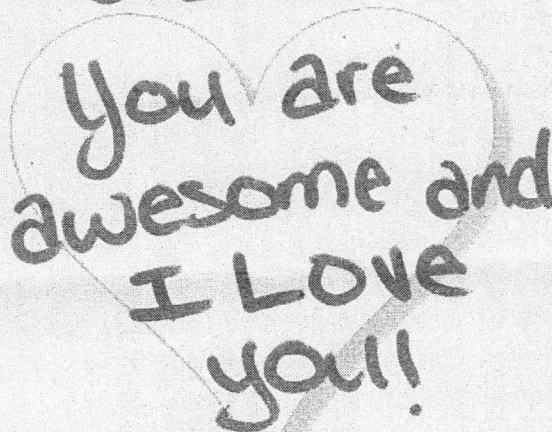 You are
awesome and
I Love
you!